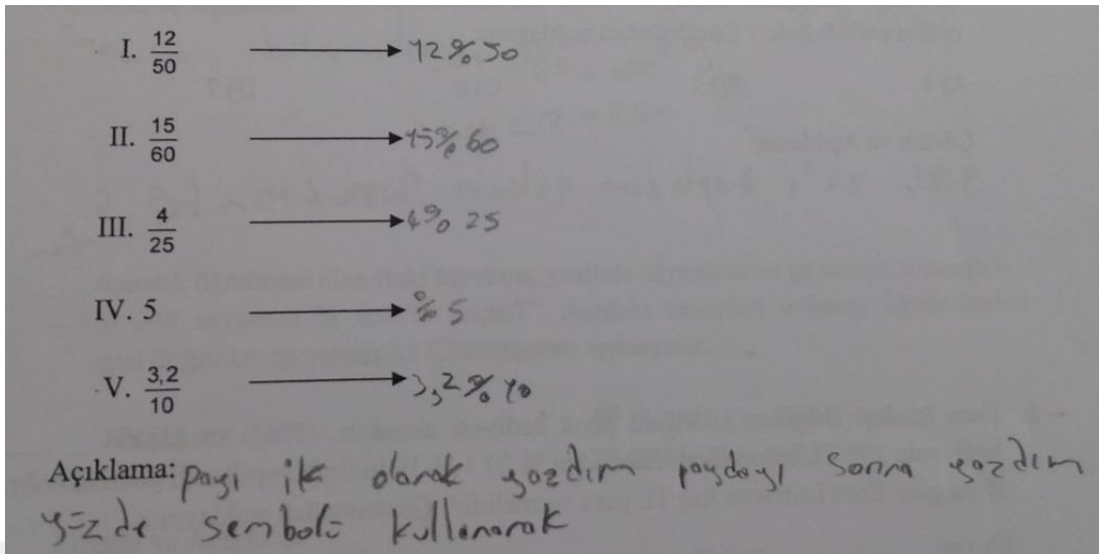 I. 12/50 → 12%50
II. 15/60 → 15%60
III. 4/25 → 4%25
IV. 5 → %5
V. 3,2/10 → 3,2%10
Açıklama: payı ilk olarak yazdım paydayı sonra yazdım
yüzde sembolü kullanarak